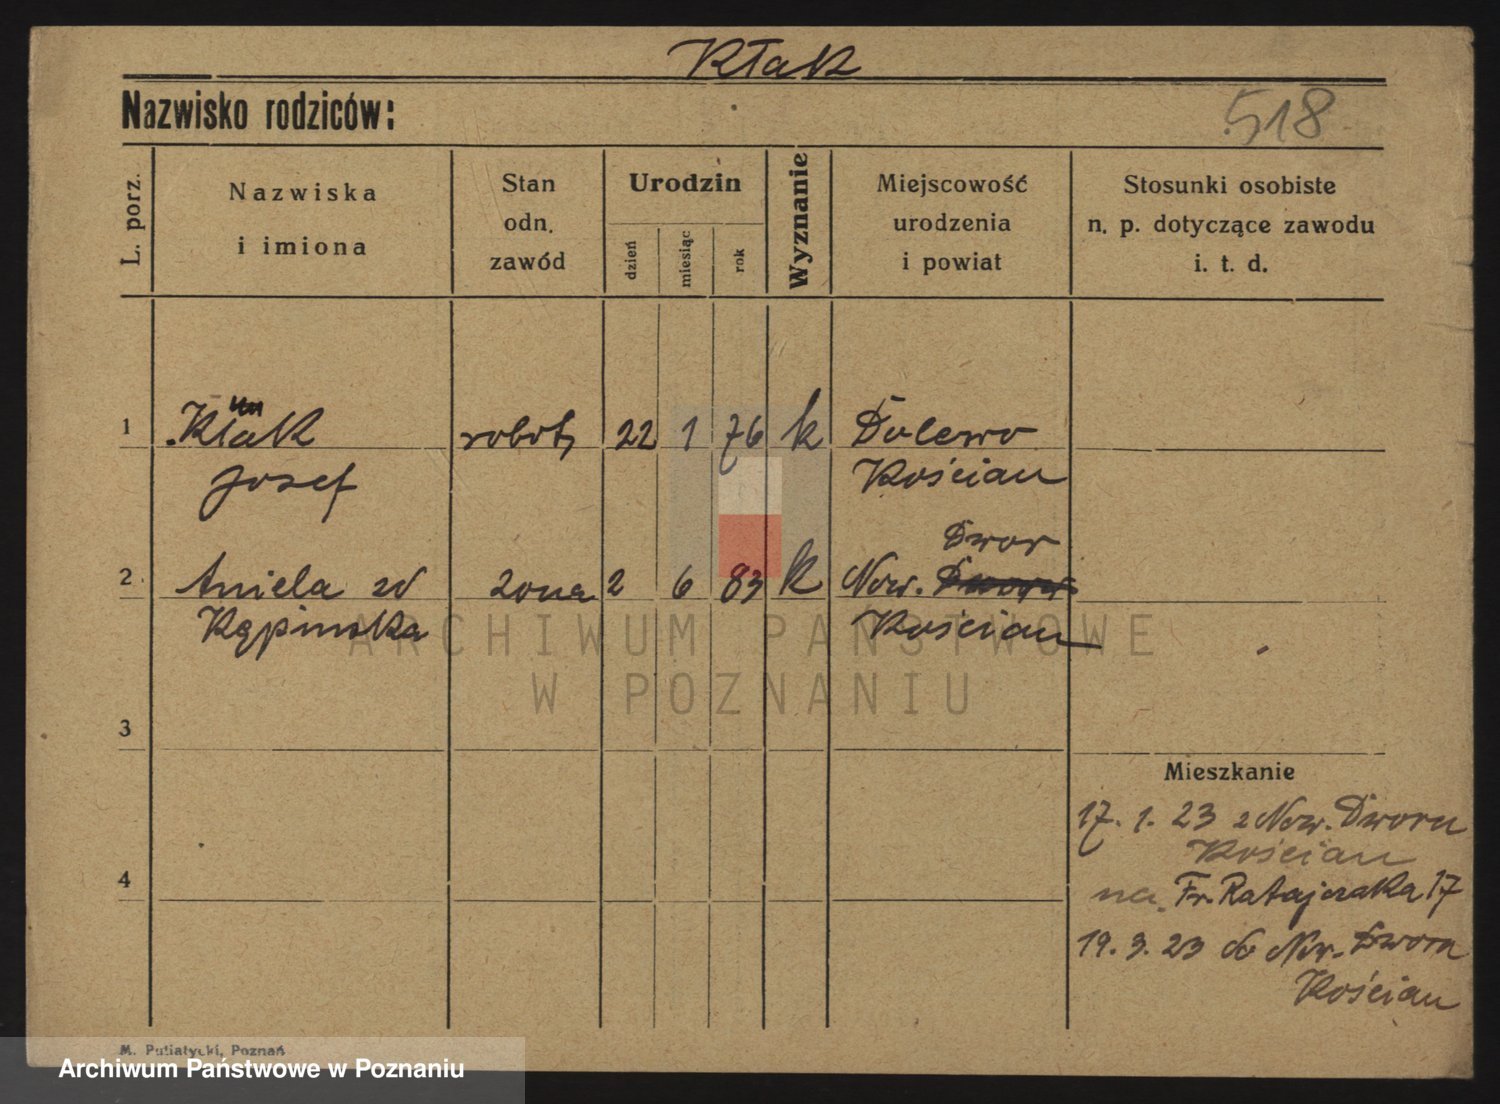 Kłak
Nazwisko rodziców:
518
L. porz.
Nazwiska
i imiona
Stan
odn.
zawód
Urodzin
dzień
miesiąc
rok
Wyznanie
Miejscowość
urodzenia
i powiat
Stosunki osobiste
n. p. dotyczące zawodu
i. t. d.
1 Kłak robotn 22 1 76 k Dolewo
Josef Kościan
Dwor
2 Aniela zd żona 2 6 83 k Now.
Kępinska Kościan
ARCHIWUM PAŃSTWOWE
W POZNANIU
3
Mieszkanie
17. 1. 23 z Now. Dworu
Kościan
4
na Fr. Ratajczaka 17
19. 3. 23 do Now. Dwora
Kościan
M. Putiatycki, Poznań
Archiwum Państwowe w Poznaniu